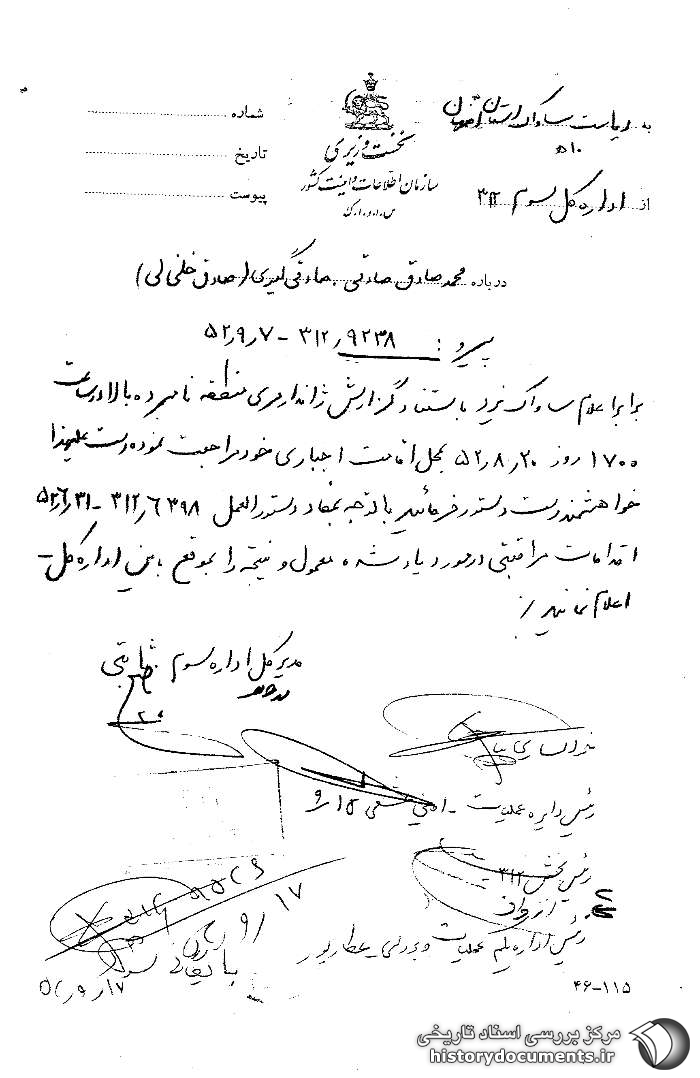 به ریاست ساواک استان اصفهان
۱۰ ه
از اداره کل سوم ۳۱۲
نخست وزیری
سازمان اطلاعات و امنیت کشور
س.ا.و.ا.ک
شماره
تاریخ
پیوست
درباره محمد صادق صادقی، صادقی گیوی (صادق خلخالی)
پیرو: ۳۱۲/۹۲۳۸ - ۵۲/۹/۷
برابر اعلام ساواک یزد باستناد گزارش ژاندارمری منطقه نامبرده بالا در ساعت
۱۷۰۰ روز ۵۲/۸/۲۰ بمحل اقامت اجباری خود مراجعت نموده است علیهذا
خواهشمند است دستور فرمائید با توجه بمفاد دستورالعمل ۳۱۲/۶۳۹۸ - ۵۲/۶/۳۱
اقدامات مراقبتی در مورد یاد شده معمول و نتیجه را بموقع باین اداره کل
اعلام نمایند
مدیر کل اداره سوم ثابتی
رئیس دایره عملیات -
رئیس بخش ۳۱۲
رئیس اداره یکم عملیات و بررسی - عطارپور
۹/۱۷
۵۲/۹/۱۷
۴۶-۱۱۵
مرکز بررسی اسناد تاریخی
historydocuments.ir